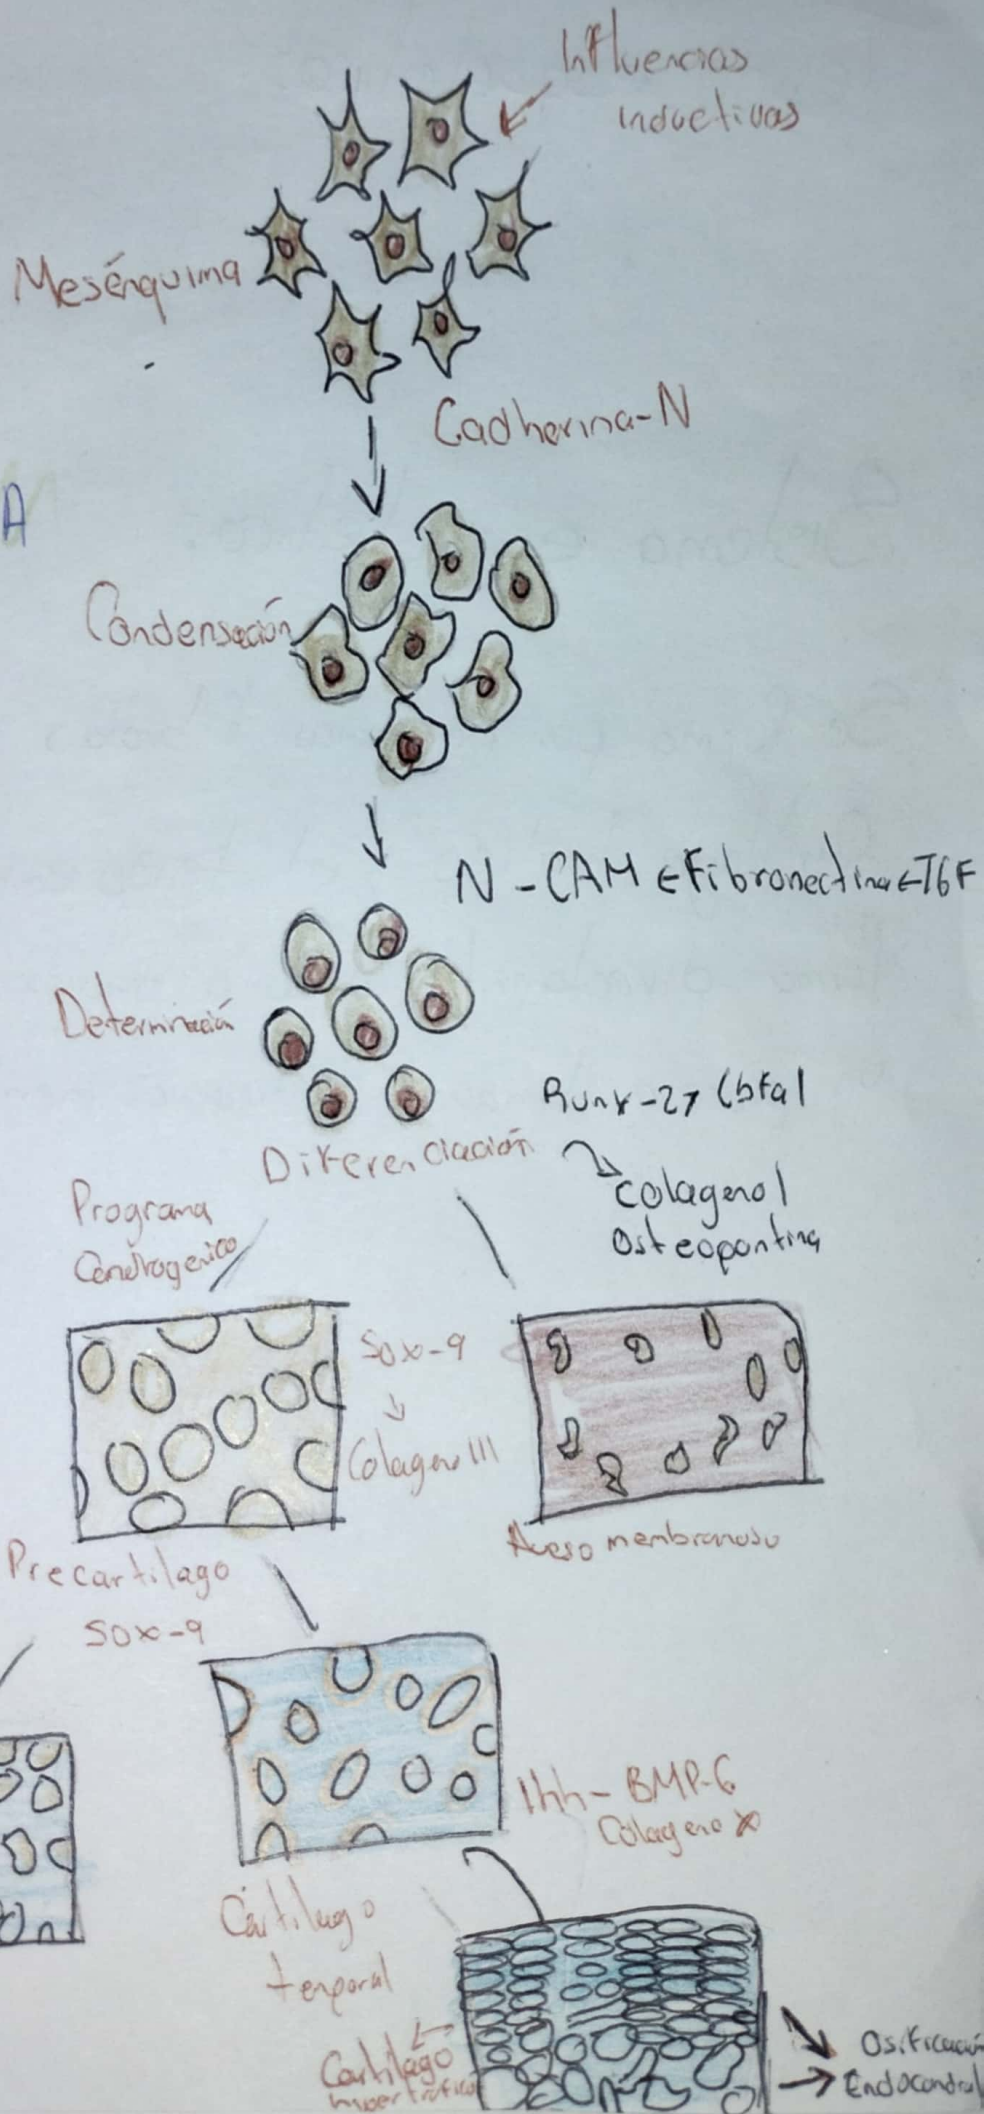 Influencias
inductivas
Mesénquima
Cadherina-N
A
Condensación
N-CAM ← Fibronectina ← TGF
Determinación
Runx-2 → Cbfa1
Diferenciación
Colageno I
Osteopontina
Programa
Condrogenico
Sox-9
↓
Colageno III
Hueso membranoso
Precartilago
Sox-9
Ihh - BMP-6
Colageno X
Cártilago
temporal
Cartilago
hipertrófico
Osificación
Endocondral